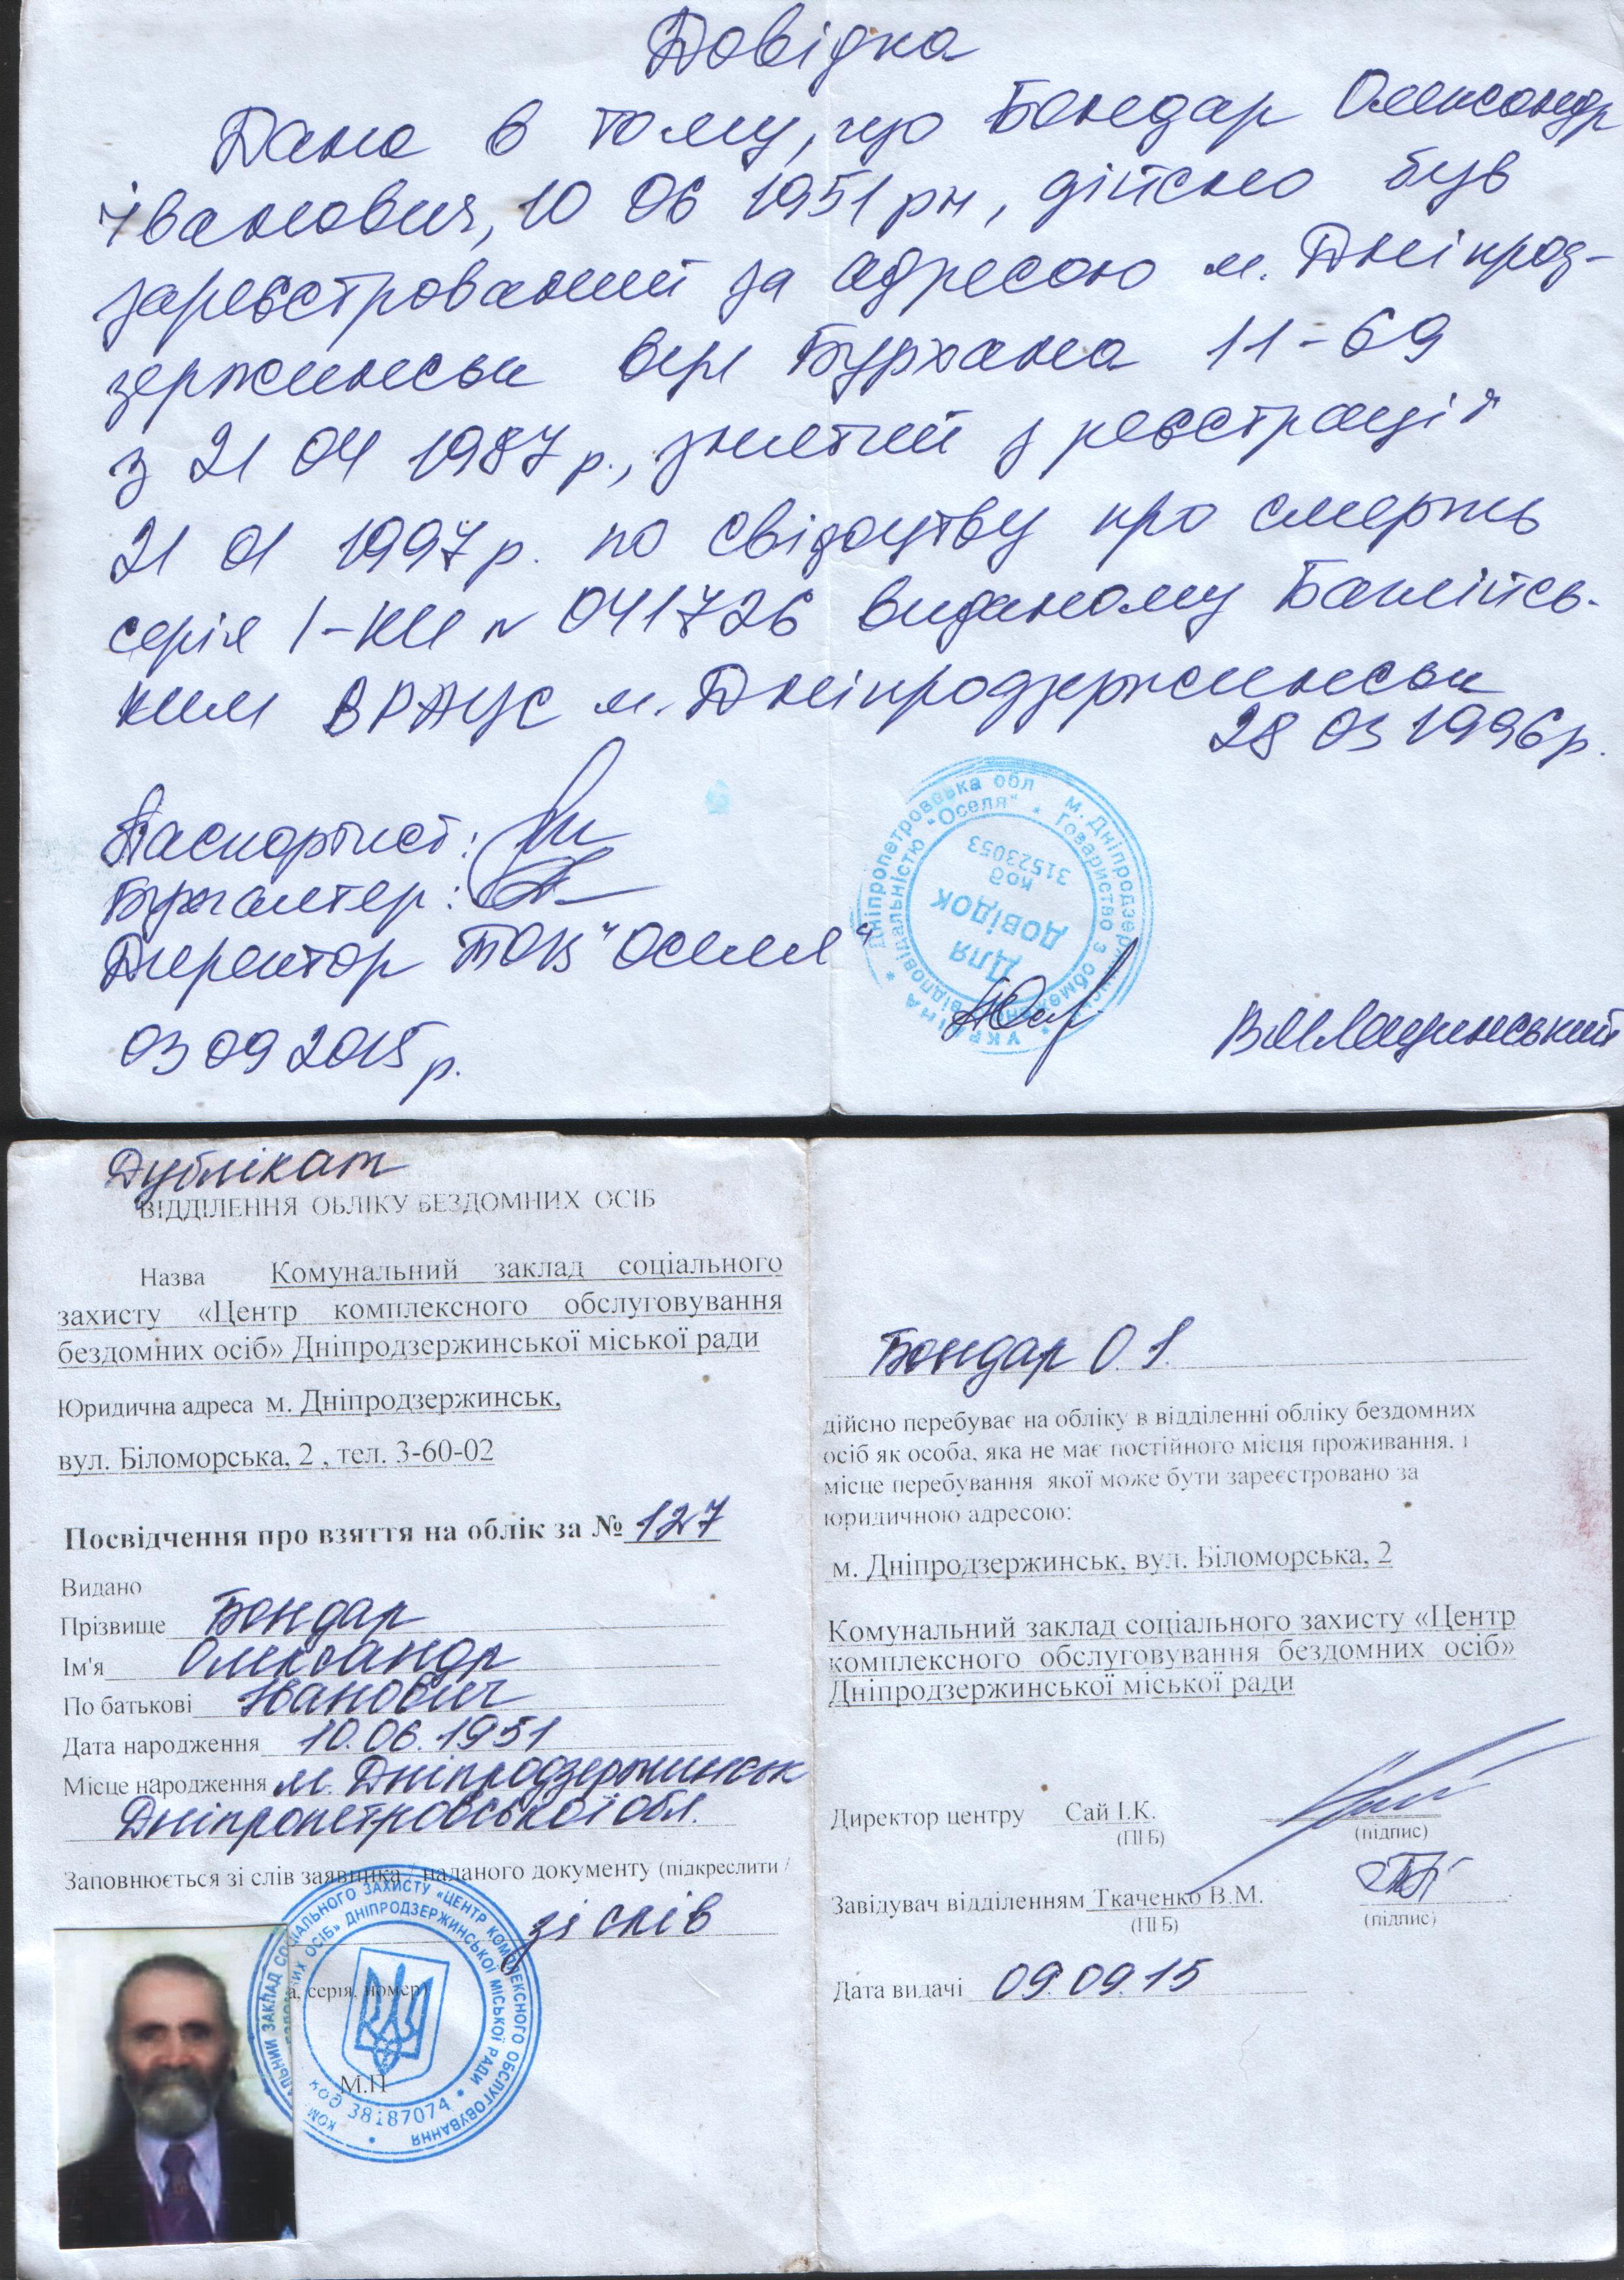 Довідка
Дана в тому, що Бондар Олександр
Іванович, 10 06 1951 рн, дійсно був
зареєстрований за адресою м. Дніпрод-
зержинськ вул Бурхана 11-69
з 21 04 1987 р., знятий з реєстрації
21 01 1997 р. по свідоцтву про смерть
серія І-КИ № 041726 виданому Баглійсь-
ким ВРАЦС м. Дніпродзержинськ
28 03 1996 р.
Паспортист:
Бухгалтер:
Директор ТОВ "Оселя"
03 09 2015 р.
УКРАЇНА * Дніпропетровська обл м. Дніпродзержинськ
Товариство з обмеженою відповідальністю "Оселя" *
Для
довідок
код
31523053
Дублікат
ВІДДІЛЕННЯ ОБЛІКУ БЕЗДОМНИХ ОСІБ
Назва Комунальний заклад соціального
захисту «Центр комплексного обслуговування
бездомних осіб» Дніпродзержинської міської ради
Юридична адреса м. Дніпродзержинськ,
вул. Біломорська, 2 , тел. 3-60-02
Посвідчення про взяття на облік за № 127
Видано
Прізвище Бондар
Ім'я Олександр
По батькові Іванович
Дата народження 10.06.1951
Місце народження м. Дніпродзержинськ
Дніпропетровської обл.
Заповнюється зі слів заявника / наданого документу (підкреслити /
зі слів
а, серія, номер)
М.П
КОМУНАЛЬНИЙ ЗАКЛАД СОЦІАЛЬНОГО ЗАХИСТУ «ЦЕНТР КОМПЛЕКСНОГО ОБСЛУГОВУВАННЯ
БЕЗДОМНИХ ОСІБ» ДНІПРОДЗЕРЖИНСЬКОЇ МІСЬКОЇ РАДИ
код 38187074
Бондар О. І.
дійсно перебуває на обліку в відділенні обліку бездомних
осіб як особа, яка не має постійного місця проживання, і
місце перебування якої може бути зареєстровано за
юридичною адресою:
м. Дніпродзержинськ, вул. Біломорська, 2
Комунальний заклад соціального захисту «Центр
комплексного обслуговування бездомних осіб»
Дніпродзержинської міської ради
Директор центру Сай І.К.
(ПІБ) (підпис)
Завідувач відділенням Ткаченко В.М.
(ПІБ) (підпис)
Дата видачі 09.09.15